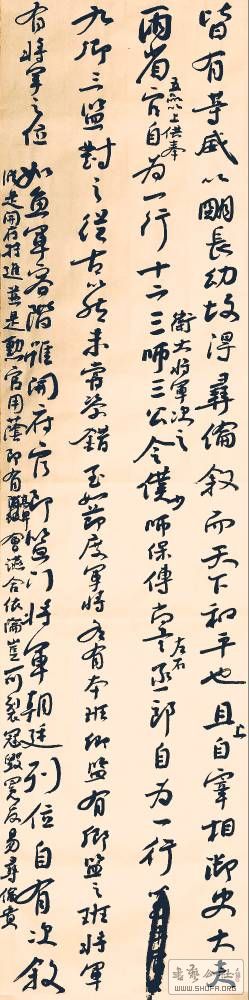 皆有等威以明長幼故得彝倫敘而天下和平也且上自宰相御史大夫
兩省五品以上供奉官自為一行十二衛大將軍次之三師三公令僕少師保傅尚書左右丞郎自為一行
九卿三監對之從古以然未嘗參錯至如節度軍將各有本班卿監有卿監之班將軍
有將軍之位
縱是開府特進並是勳官用蔭即有高卑會讌合依倫豈可裂冠毀冕反易彝倫貴
如魚軍容階雖開府官即監門將軍朝廷列位自有次敘
WWW.SHUFA.ORG